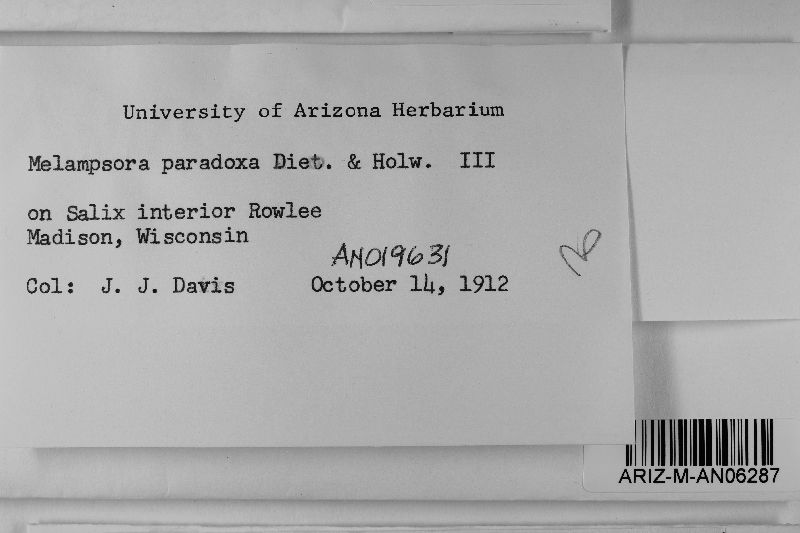 University of Arizona Herbarium
Melampsora paradoxa Diet. & Holw. III
on Salix interior Rowlee
Madison, Wisconsin
AN019631
Col: J. J. Davis October 14, 1912
ARIZ-M-AN06287